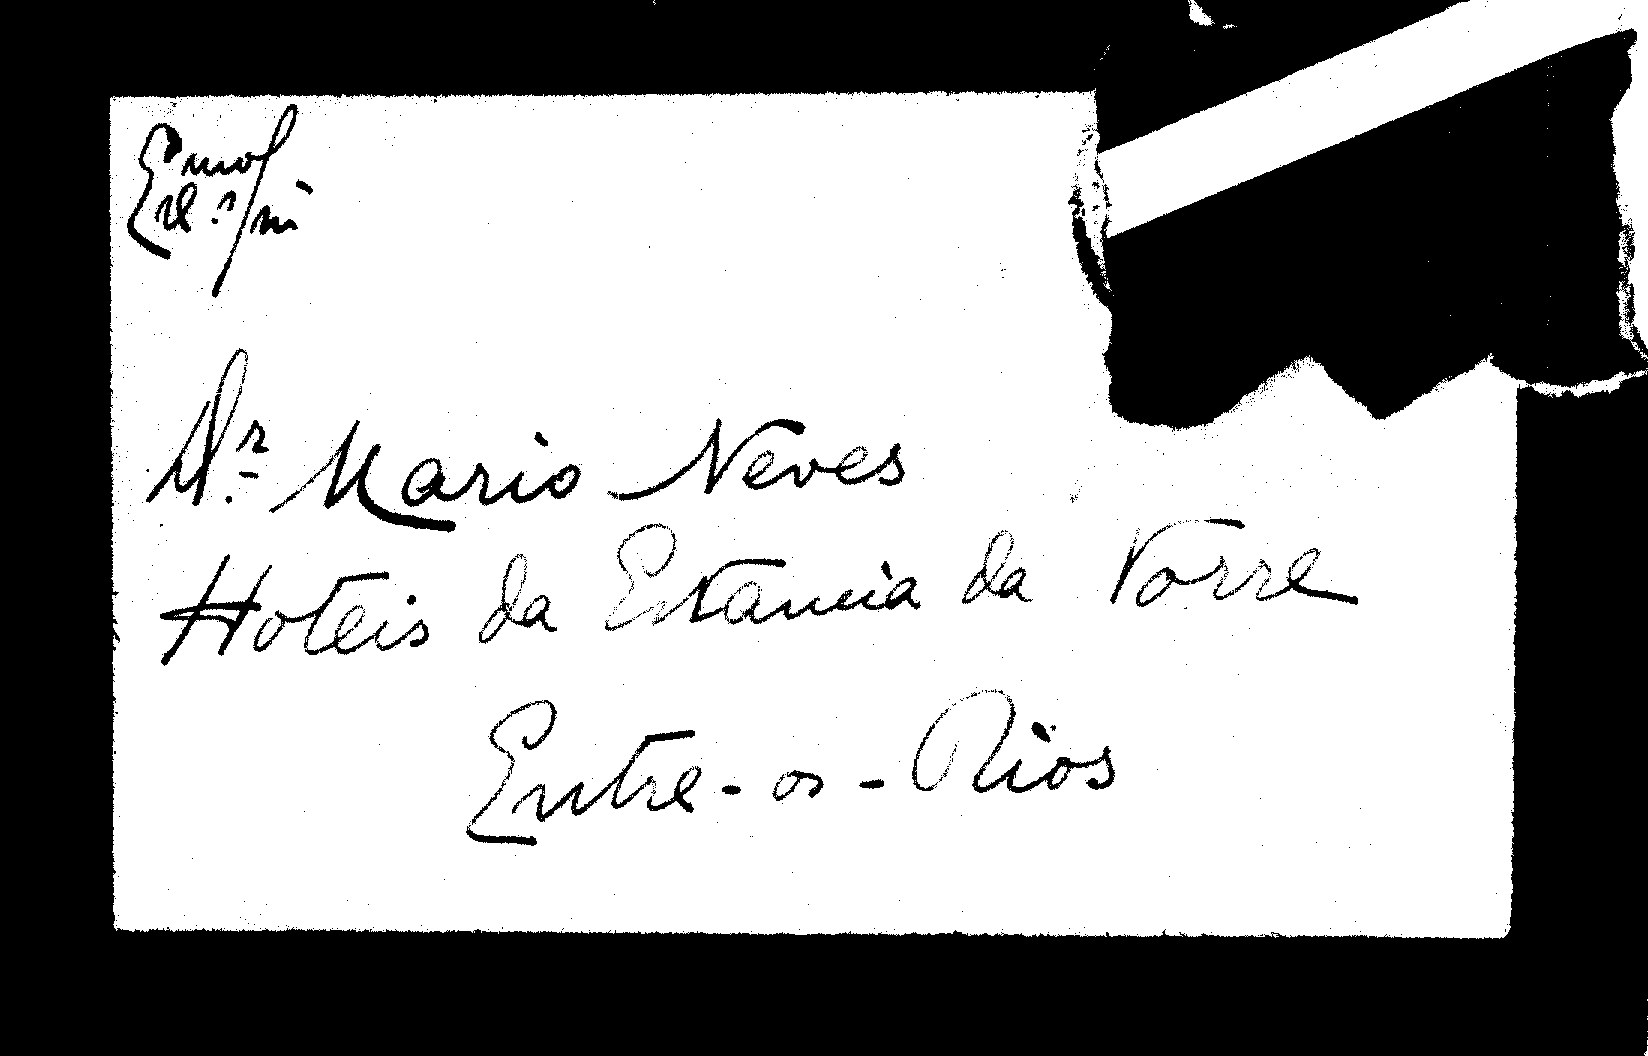 Exmo
Dr. Mario Neves
Hoteis da Estancia da Torre
Entre-os-Rios